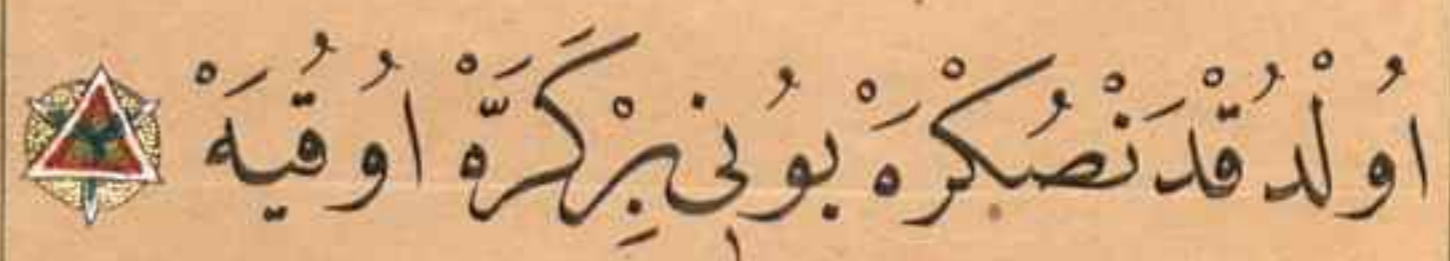 اُولْدُقْدَنْصُكْرَهْ بُونِى بِرْكَرَّهْ اُوقُيَهْ